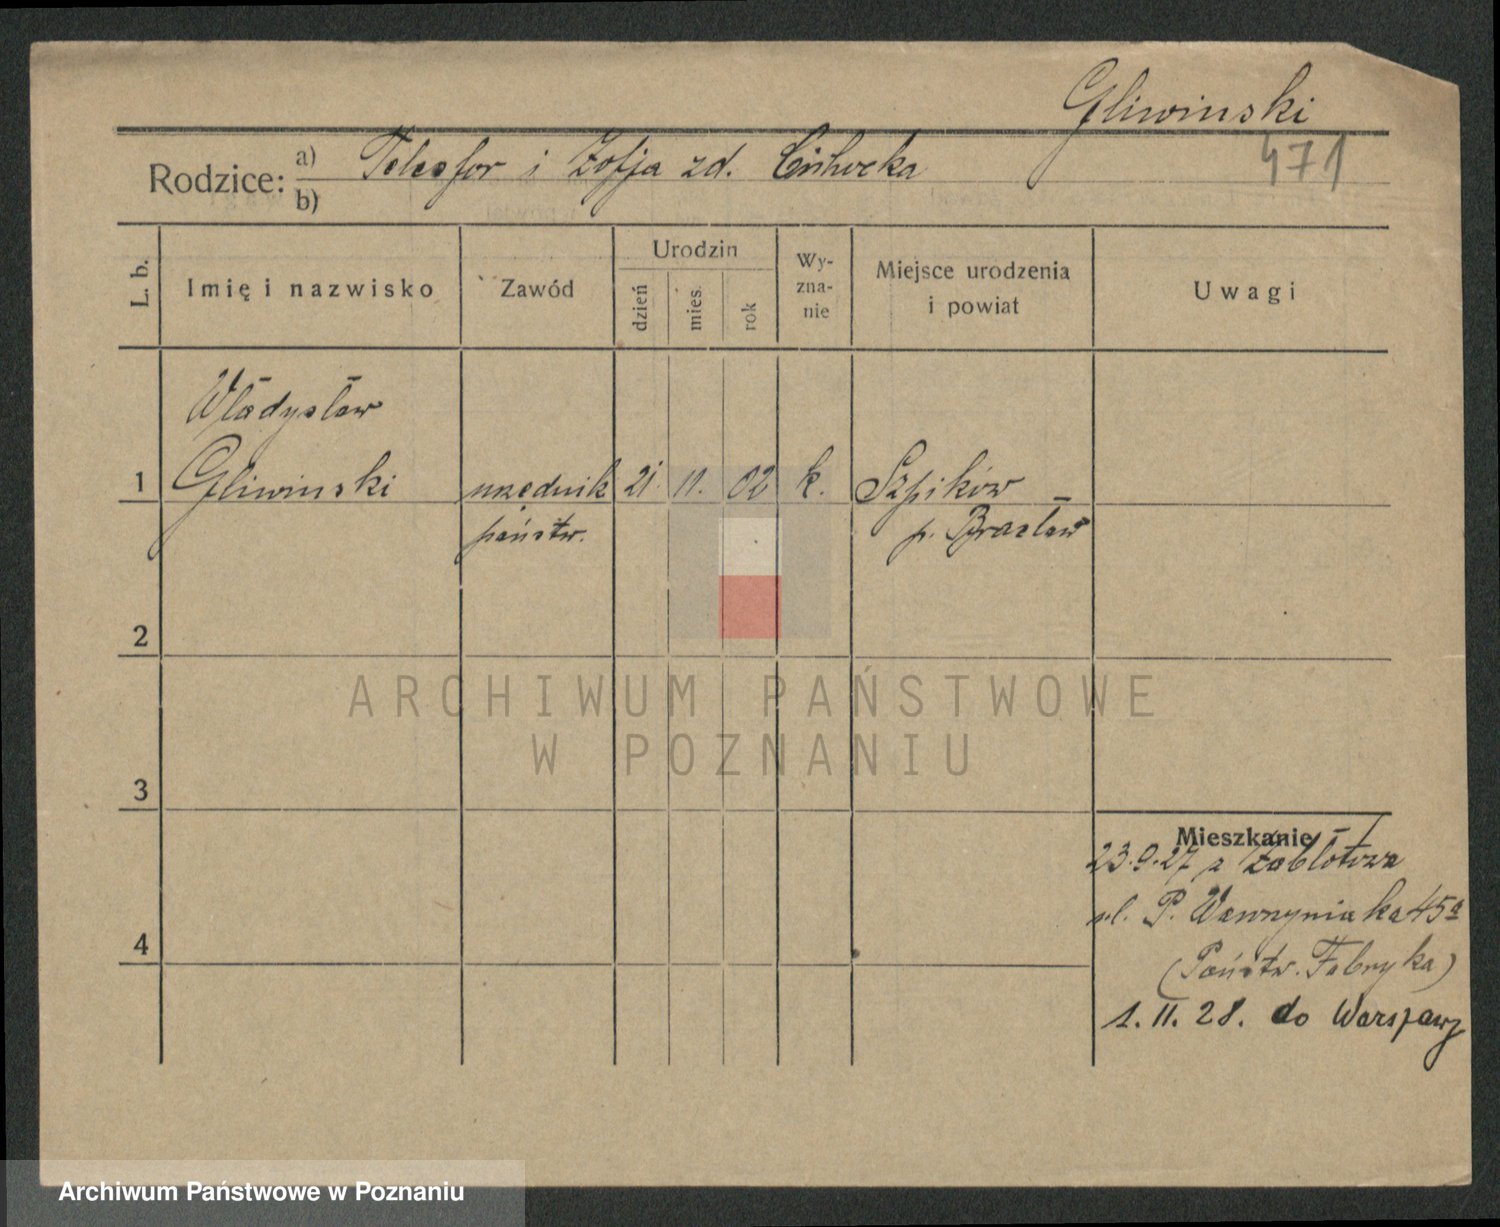 Gliwinski
471
Rodzice: a) Telesfor i Zofja zd. Cichocka
b)
L. b.
Imię i nazwisko
Zawód
Urodzin
dzień
mies.
rok
Wy-
zna-
nie
Miejsce urodzenia
i powiat
Uwagi
Władysław
1 Gliwinski urzędnik 21. 11. 02 k. Szpików
państw. p. Bracław
2
ARCHIWUM PAŃSTWOWE
W POZNANIU
3
Mieszkanie
23.9.27 z Zabłotowa
ul. P. Wawrzyniaka 45a
4
(Państw. Fabryka)
1. II. 28. do Warszawy
Archiwum Państwowe w Poznaniu